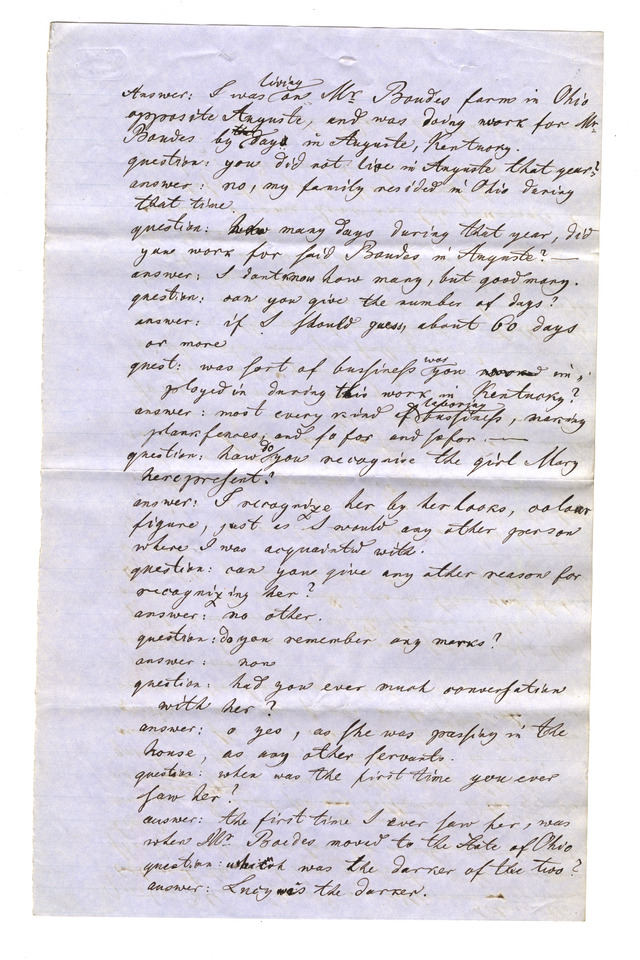 Answer: I was living on Mr Boudes farm in Ohio
opposite Auguste, and was doing work for Mr
Boudes by the days in Auguste, Kentucky.
question: you did not live in Auguste that year?
answer: no, my family resided in Ohio during
that time.
question: how many days during that year, did
you work for said Boudes in Auguste? —
answer: I dont know how many, but good many.
question: can you give the number of days?
answer: if I should guess, about 60 days
or more
quest: was sort of bussiness was you im,,
ployed in during this work in Kentucky?
answer: most every kind of laboring bussiness, making
plank fences, and so for and so for. —
question: how do you recognise the girl Mary
here present?
answer: I recognize her by her looks, colour
figure, just as I would any other person
where I was acquainted with.
question: can youe give any other reason for
recognizing her?
answer: no other.
question: do you remember any marks?
answer: non
question: had you ever much conversation
with her?
answer: o yes, as she was passing in the
house, as any other servants.
question: when was the first time you ever
saw her?
answer: the first time I ever saw her, was
when Mr Boudes moved to the State of Ohio
question: which was the darker of the two?
answer: Lucy is the darker.